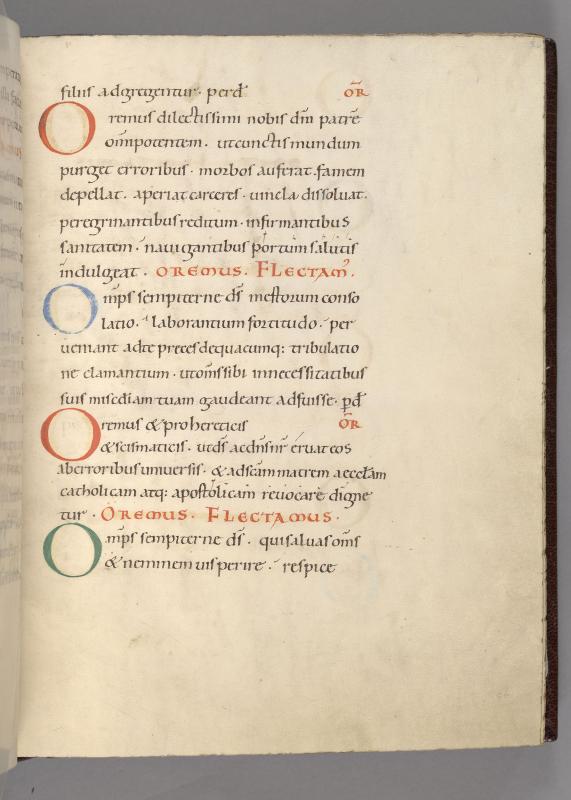 filiis adgregentur. perd̄ OR̄
Oremus dilectissimi nobis dm̄ patrē
om̄ipotentem. ut cunctis mundum
purget erroribus. morbos auferat. famem
depellat. aperiat carceres. vincla dissoluat.
peregrinantibus reditum. infirmantibus
sanitatem. nauigantibus portum salutis
indulgeat. OREMUS. FLECTAM̄.
Om̄ps sempiterne ds̄ mestorum conso
latio. laborantium fortitudo. per
ueniant adte preces dequacumq: tribulatio
ne clamantium. ut om̄s sibi innecessitatibus
suis misc̄diam tuam gaudeant adfuisse. p̄d̄
Oremus & pro hereticis OR̄
& scismaticis. ut ds̄ ac dn̄s nr̄ eruat eos
ab erroribus uniuersis. & ad sc̄am matrem aecclam̄
catholicam atq: apostolicam reuocare digne
tur. OREMUS. FLECTAMUS.
Om̄ps sempiterne ds̄. qui saluas om̄s
& neminem uis perire. respice